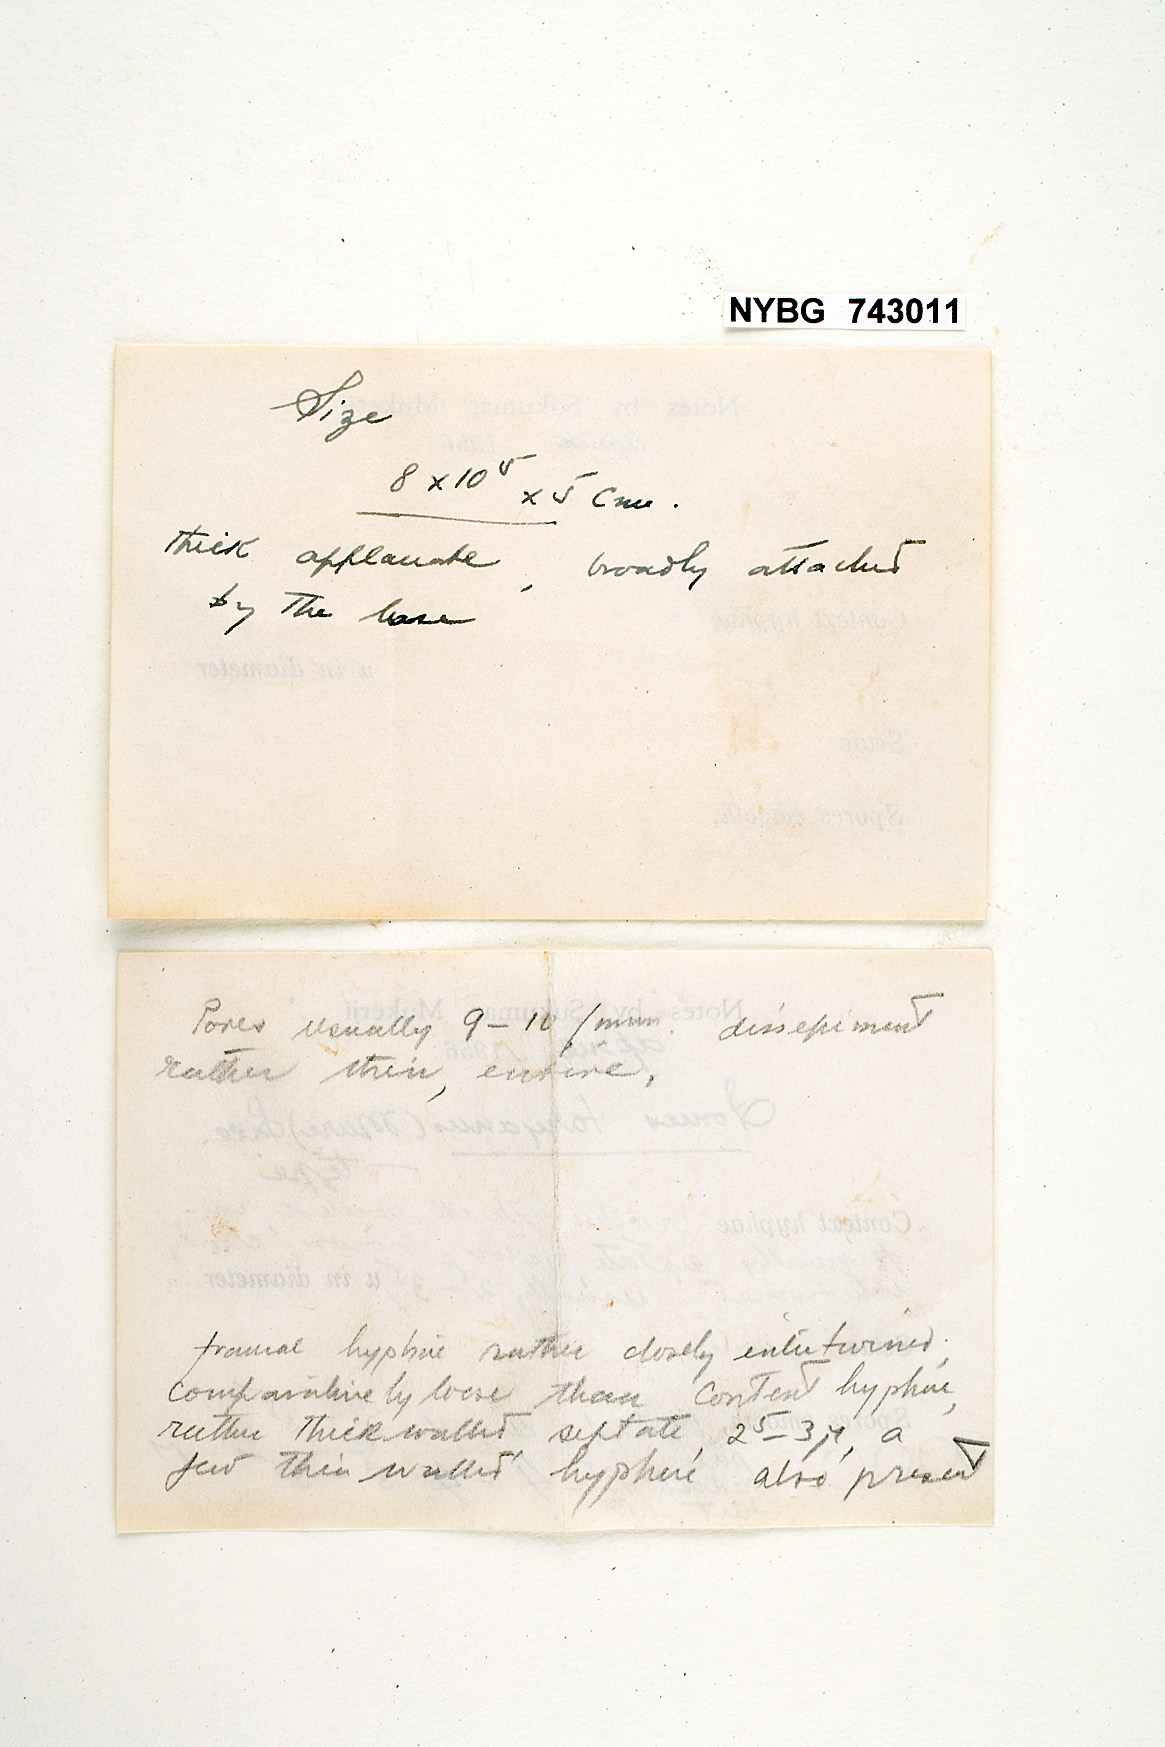 NYBG 743011
Size
8 x 10⁵ x 5 Cm.
thick applanate, broadly attached
by the base
Pores usually 9-10/mm. dissepiment
rather thin, entire,
tramal hyphae rather closely intertwined,
comparatively loose than context hyphae,
rather thick walled septate, 2⁵-3µ, a
few thin walled hyphae also present